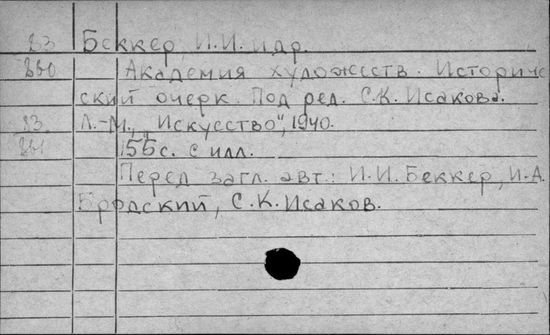 83 Беккер, И.И. и др.
Академия художеств. Историче
ский очерк. Под ред. С.К. Исакова.
83. Л.-М., „Искусство", 1940.
155 с. с илл.
Перед загл. авт.: И.И. Беккер, И.А.
Бродский, С.К. Исаков.